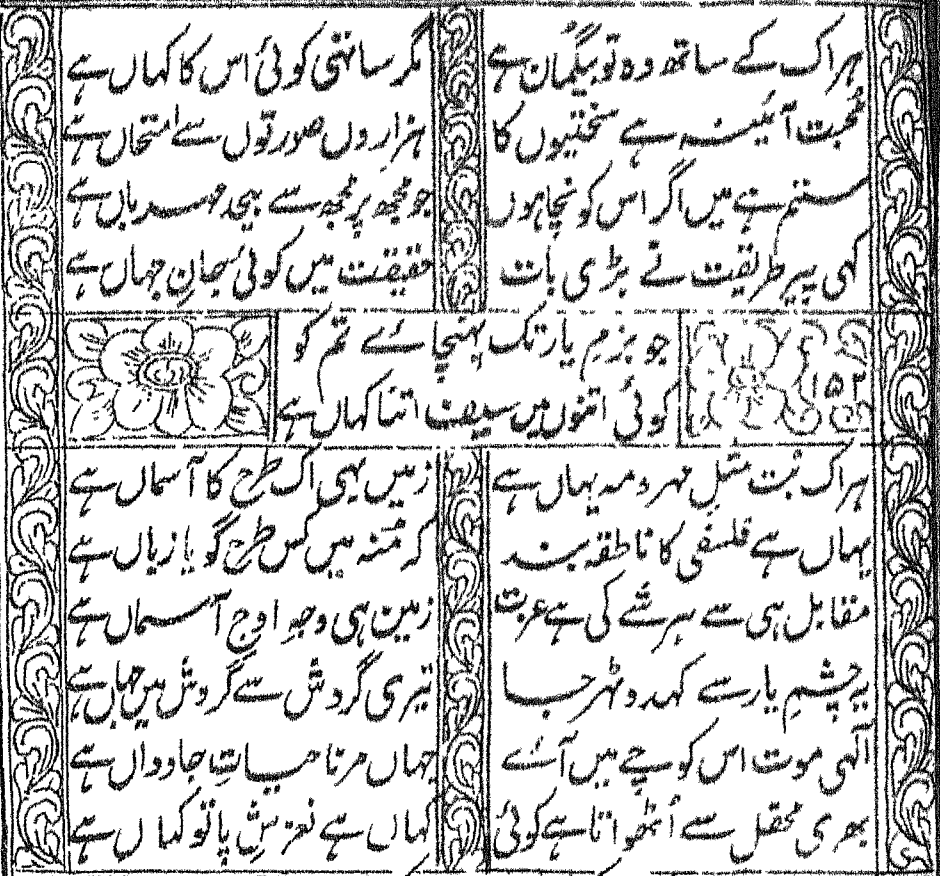 ہر اک کے ساتھ وہ تو بیگمان ہے مگر ساتھی کوئی اس کا کہاں ہے
محبت آئینہ ہے سختیوں کا ہزاروں صورتوں سے امتحاں ہے
ستم ہے میں اگر اس کو نچاہوں جو مجھ پر مجھ سے بیحد مہرباں ہے
کہی پیر طریقت نے بڑی بات حقیقت میں کوئی سبحانِ جہاں ہے
جو بزمِ یار تک پہنچائے تم کو
۱۵۲
کوئی اتنوں میں سیفؔ اتنا کہاں ہے
ہر اک بت مثلِ مہر و مہ یہاں ہے زمیں یہی اک طرح کا آسماں ہے
یہاں ہے فلسفی کا ناطقہ بند کہ مُنہ میں کس طرح گویا زباں ہے
مقابل ہی سے ہر شے کی ہے عزت زمین ہی وجہِ اوجِ آسماں ہے
یہ چشمِ یار سے کہدو ٹہر جا تیری گردش سے گردش میں جہاں ہے
الٰہی موت اس کوچے میں آئے جہاں مرنا حیاتِ جاوداں ہے
بھری محفل سے اُٹھواتا ہے کوئی کہاں ہے لغزشِ پا تو کہاں ہے